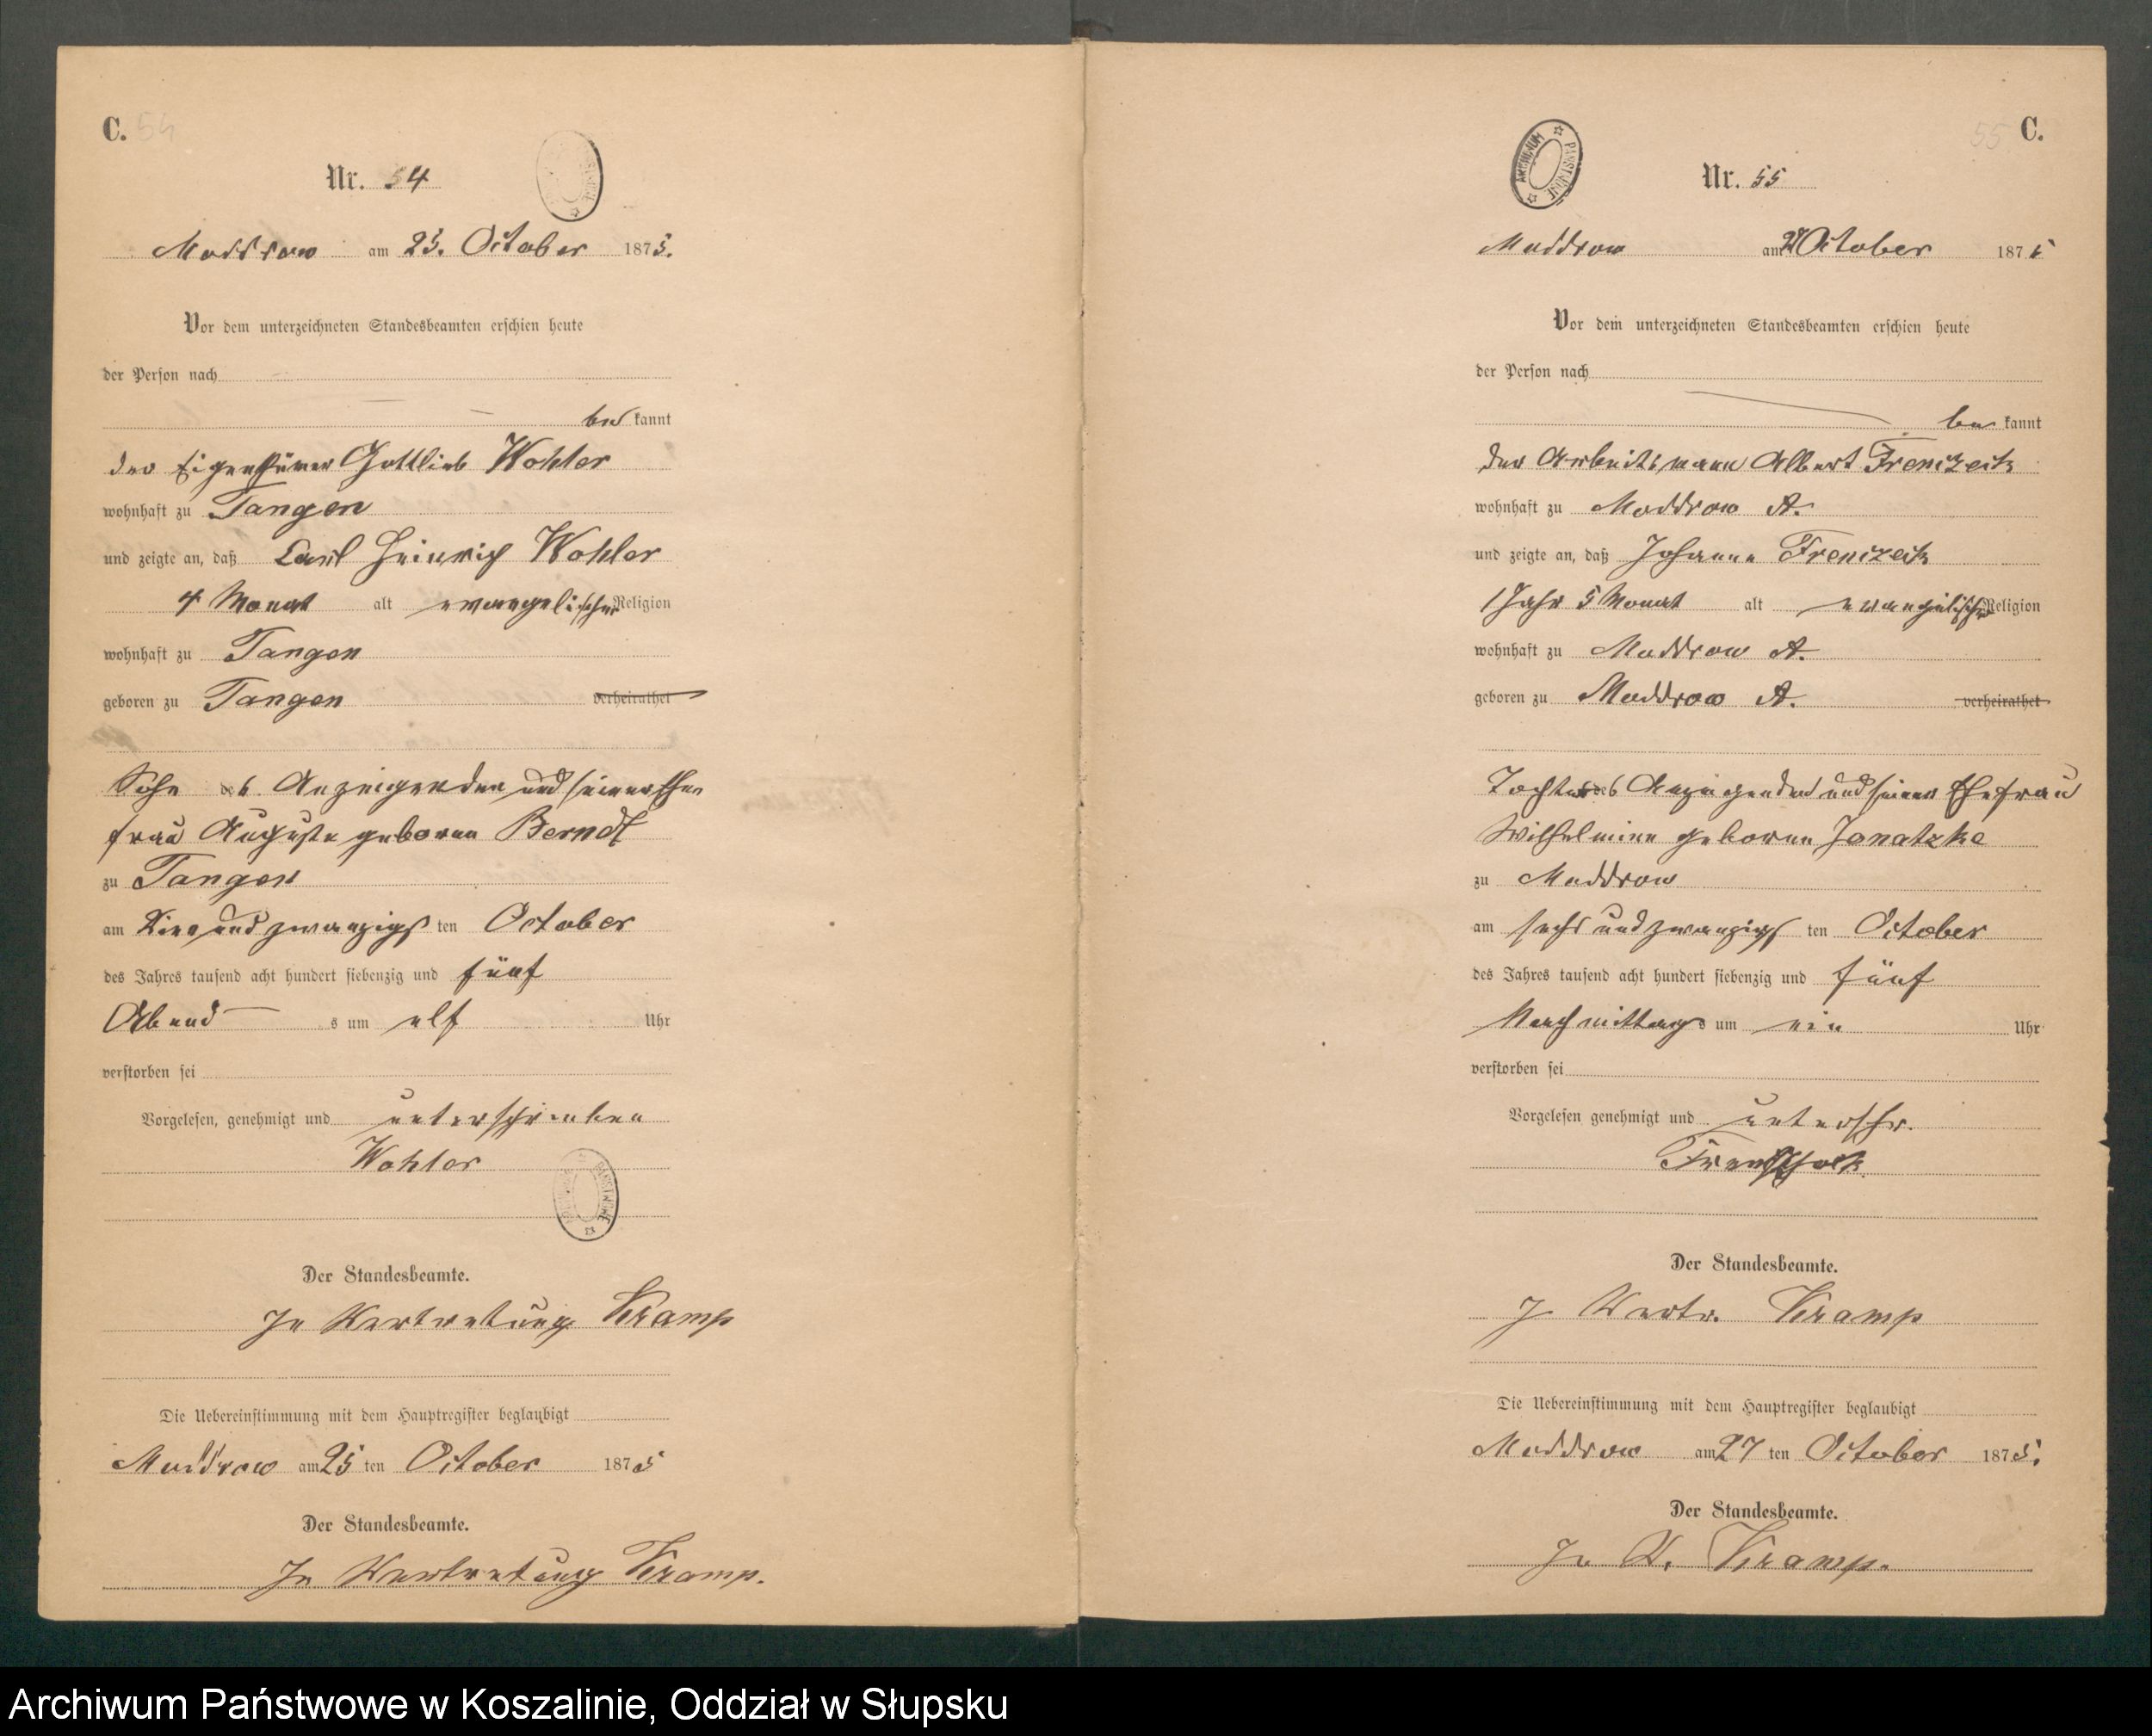 C. 54
Nr. 54
Moddrow am 25. October 1875.
Vor dem unterzeichneten Standesbeamten erschien heute
der Person nach
be kannt
der Eigenthümer Gottlieb Wohler
wohnhaft zu Tangen
und zeigte an, daß Carl Heinrich Wohler
4 Monat alt evangelischer Religion
wohnhaft zu Tangen
geboren zu Tangen verheirathet
Sohn des Anzeigenden und seiner Ehe
frau Auguste geborene Berndt
zu Tangen
am Vier und zwanzigs ten October
des Jahres tausend acht hundert siebenzig und fünf
Abend s um elf Uhr
verstorben sei
Vorgelesen, genehmigt und unterschrieben
Wohler
Der Standesbeamte.
In Vertretung Kramp
Die Uebereinstimmung mit dem Hauptregister beglaubigt
Moddrow am 25 ten October 1875
Der Standesbeamte.
In Vertretung Kramp.
55 C.
ARCHIWUM PAŃSTWOWE
Nr. 55
Moddrow am 27 October 1875
Vor dem unterzeichneten Standesbeamten erschien heute
der Person nach
be kannt
der Arbeitsmann Albert Frenizeck
wohnhaft zu Moddrow A.
und zeigte an, daß Johanne Frenizeck
1 Jahr 5 Monat alt evangelischer Religion
wohnhaft zu Moddrow A.
geboren zu Moddrow A. verheirathet
Tochter des Anzeigenden und seiner Ehefrau
Wilhelmine geborene Janatzke
zu Moddrow
am sechs und zwanzigs ten October
des Jahres tausend acht hundert siebenzig und fünf
Nachmittags um ein Uhr
verstorben sei
Vorgelesen genehmigt und unterschr.
Der Standesbeamte.
J. Vertr. Kramp
Die Uebereinstimmung mit dem Hauptregister beglaubigt
Moddrow am 27 ten October 1875.
Der Standesbeamte.
In V. Kramp.
Archiwum Państwowe w Koszalinie, Oddział w Słupsku